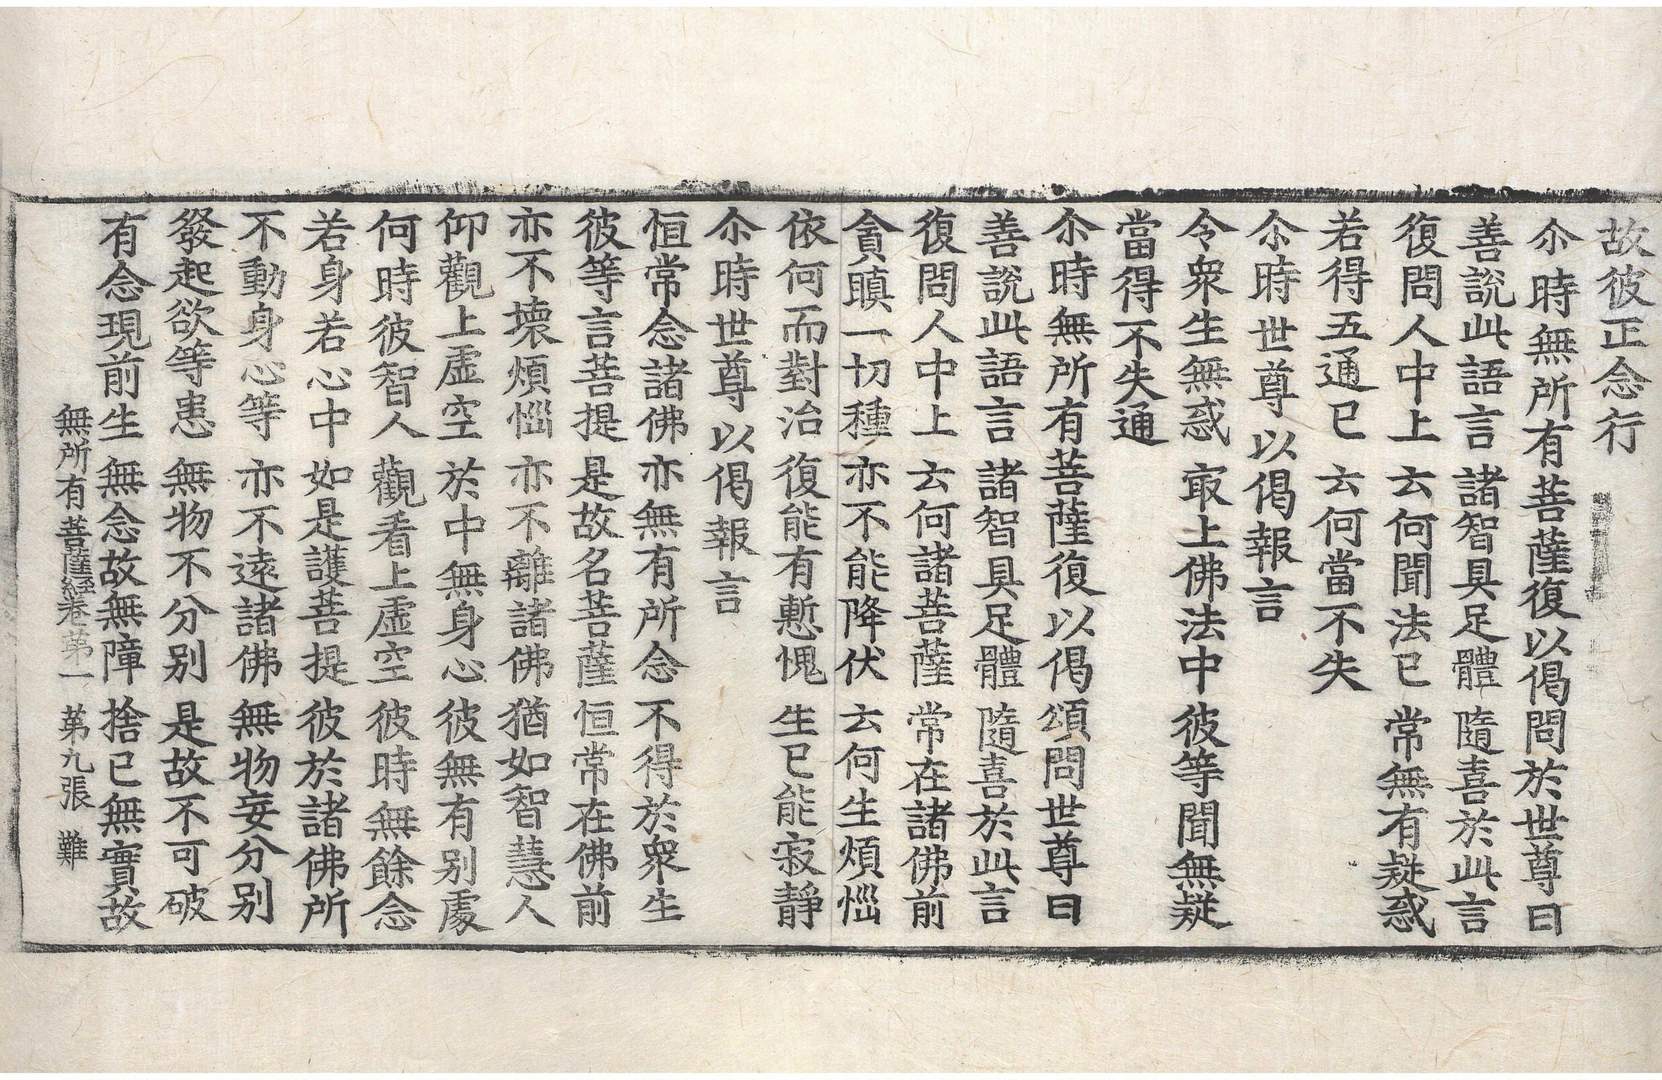 故彼正念行
尒時無所有菩薩復以偈問於世尊曰
善說此語言 諸智具足體 隨喜於此言
復問人中上 云何聞法已 常無有疑惑
若得五通已 云何當不失
尒時世尊以偈報言
令衆生無惑 㝡上佛法中 彼等聞無疑
當得不失通
尒時無所有菩薩復以偈頌問世尊曰
善說此語言 諸智具足體 隨喜於此言
復問人中上 云何諸菩薩 常在諸佛前
貪瞋一切種 亦不能降伏 云何生煩惱
依何而對治 復能有慙愧 生已能寂靜
尒時世尊以偈報言
恒常念諸佛 亦無有所念 不得於衆生
彼等言菩提 是故名菩薩 恒常在佛前
亦不壞煩惱 亦不離諸佛 猶如智慧人
仰觀上虛空 於中無身心 彼無有別處
何時彼智人 觀看上虛空 彼時無餘念
若身若心中 如是護菩提 彼於諸佛所
不動身心等 亦不遠諸佛 無物妄分別
發起欲等患 無物不分別 是故不可破
有念現前生 無念故無障 捨已無實故
無所有菩薩經卷第一 第九張 難